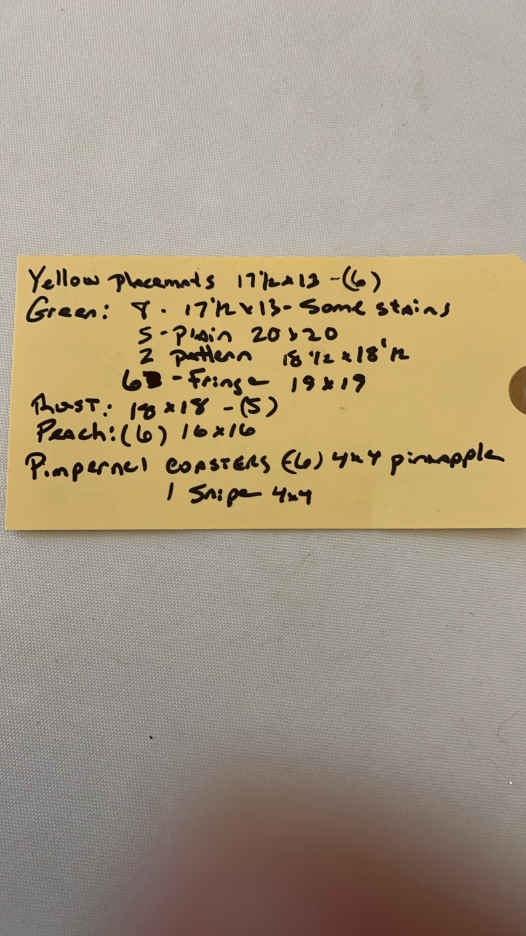 Yellow Placemats 17 1/2 x 13 - (6)
Green: 8 - 17 1/2 x 13 - Some stains
5 - Plain 20 x 20
2 pattern 18 1/2 x 18 1/2
6 - Fringe 19 x 19
Rust: 18 x 18 - (5)
Peach: (6) 16 x 16
Pimpernel COASTERS (6) 4x4 pineapple
1 Snipe 4x4